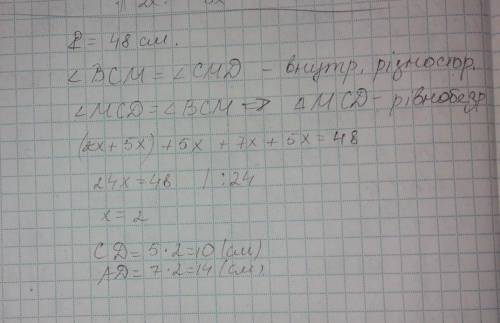 P = 48 см.
∠BCM = ∠CMD - внутр. різностор.
∠MCD = ∠BCM => ΔMCD - рівнобедр
(2x + 5x) + 5x + 7x + 5x = 48
24x = 48 | : 24
x = 2
CD = 5 · 2 = 10 (см)
AD = 7 · 2 = 14 (см)